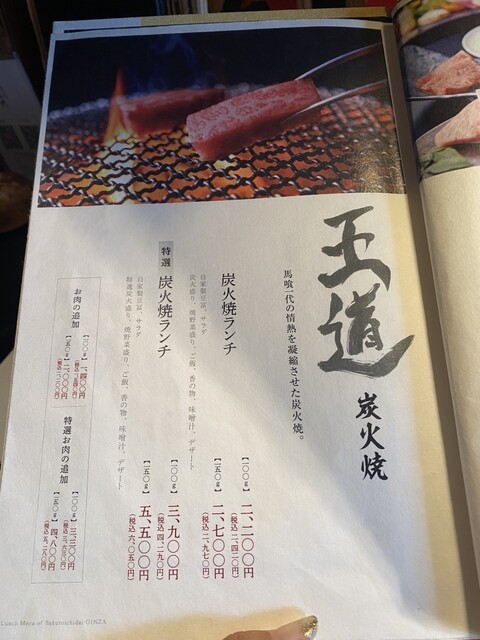 王道
炭火焼
馬喰一代の情熱を凝縮させた炭火焼。
炭火焼ランチ
自家製豆冨、サラダ
炭火盛り、焼野菜盛り、ご飯、香の物、味噌汁、デザート
【一〇〇g】二、二〇〇円
(税込 二、四二〇円)
【一五〇g】二、七〇〇円
(税込 二、九七〇円)
特選 炭火焼ランチ
自家製豆冨、サラダ
特選炭火盛り、焼野菜盛り、ご飯、香の物、味噌汁、デザート
【一〇〇g】三、九〇〇円
(税込 四、二九〇円)
【一五〇g】五、五〇〇円
(税込 六、〇五〇円)
お肉の追加
【一〇〇g】一、四〇〇円
(税込 一、五四〇円)
【一五〇g】二、〇〇〇円
(税込 二、二〇〇円)
特選お肉の追加
【一〇〇g】三、三〇〇円
(税込 三、六三〇円)
【一五〇g】四、八〇〇円
(税込 五、二八〇円)
Lunch Menu of Bakuroichidai GINZA